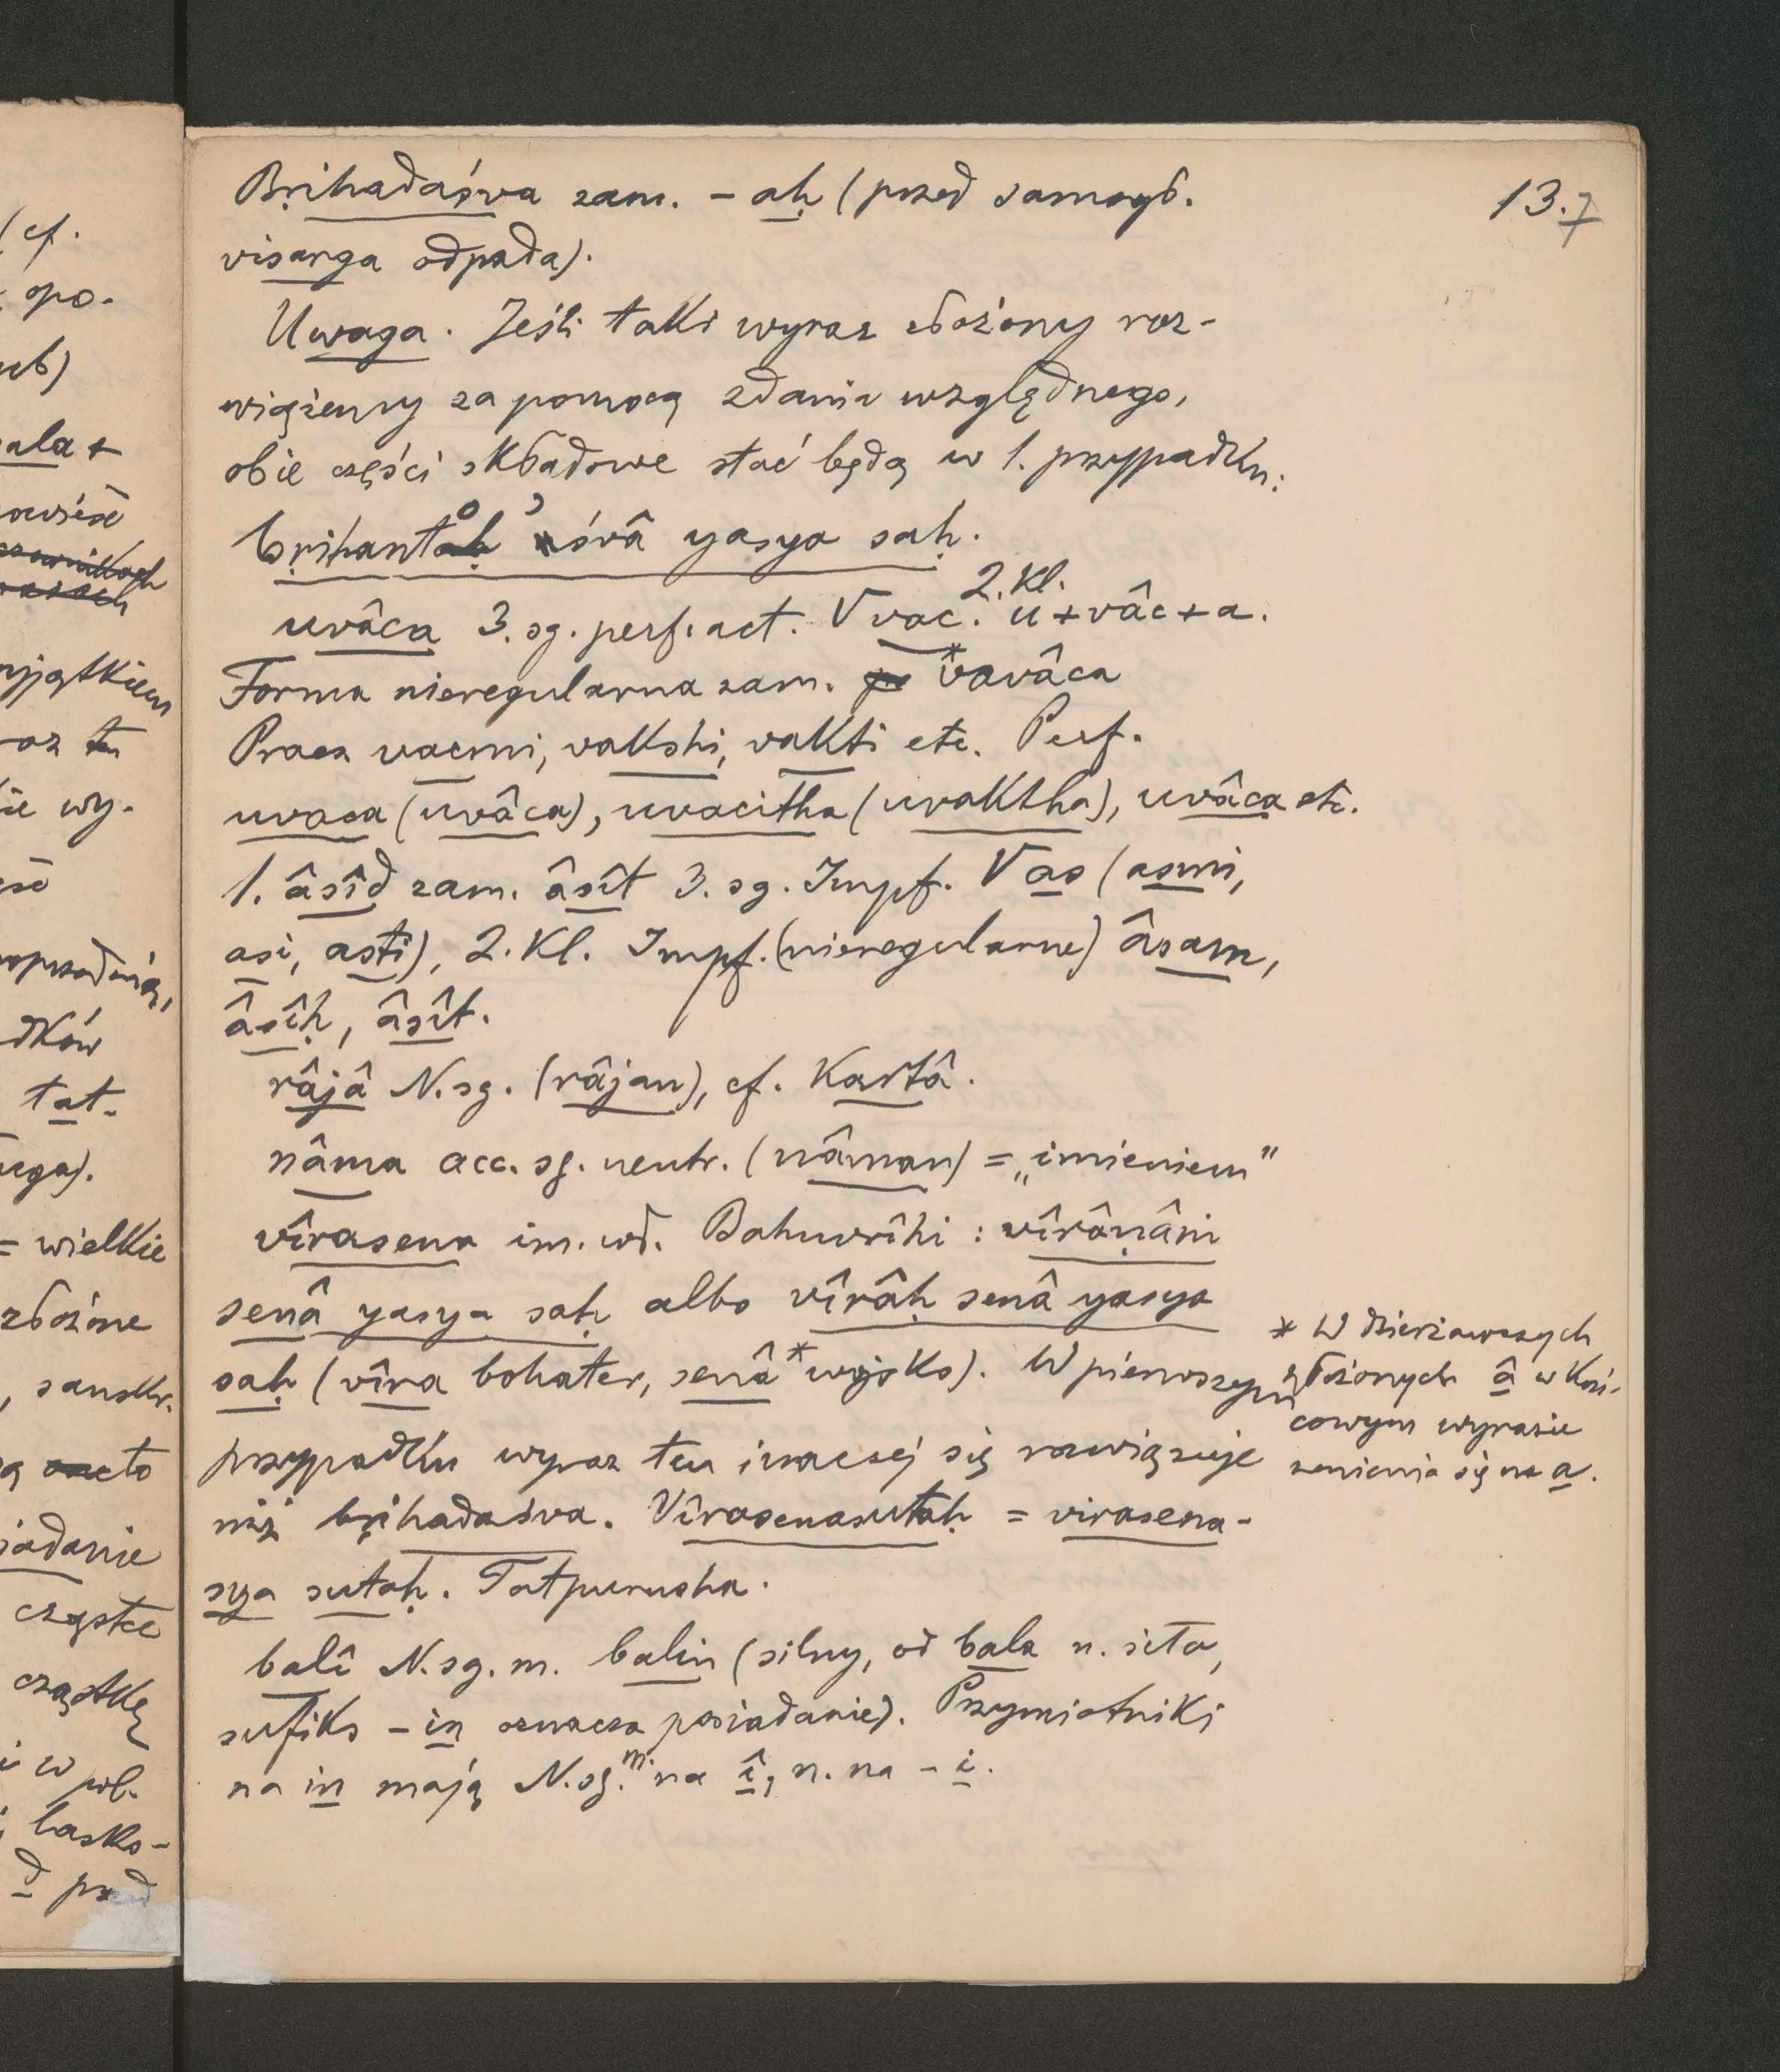 13.7
Bṛihadaśva zam. – aḥ (przed samogł.
visarga odpada).
Uwaga. Jeśli taki wyraz złożony roz-
wiążemy za pomocą zdania względnego,
obie części składowe stać będą w 1. przypadku:
bṛihanto 'śvâ yasya saḥ.
uvâca 3. sg. perf. act. √vac. 2. Kl. u+vâc+a.
Forma nieregularna zam. *vavâca
Praes vacmi, vakshi, vakti etc. Perf.
uvaca (uvâca), uvacitha (uvaktha), uvâca etc.
1. âsîd zam. âsît 3. sg. Impf. √as (asmi,
asi, asti), 2. Kl. Impf. (nieregularne) âsam,
âsîḥ, âsît.
râjâ N. sg. (râjan), cf. Kartâ.
nâma acc. sg. neutr. (nâman) = „imieniem"
vîrasena im. wł. Bahuvrîhi : vîrâṇâm
senâ yasya saḥ albo vîrâḥ senâ yasya
saḥ (vîra bohater, senâ* wojsko). W pierwszym
przypadku wyraz ten inaczej się rozwiązuje
niż bṛihadaśva. Vîrasenasutaḥ = virasena-
sya sutaḥ. Tatpurusha.
balî N. sg. m. balin (silny, od bala n. siła,
sufiks – in oznacza posiadanie). Przymiotniki
na in mają N. sg. m. na î, n. na – i.
* W dzierżawczych
złożonych â w koń-
cowym wyrazie
zmienia się na a.
(cf.
opo-
ala +
wy-
tat-
= wielkie
złożone
, sanskr.
cząstce
cząstkę
i w
lasko-